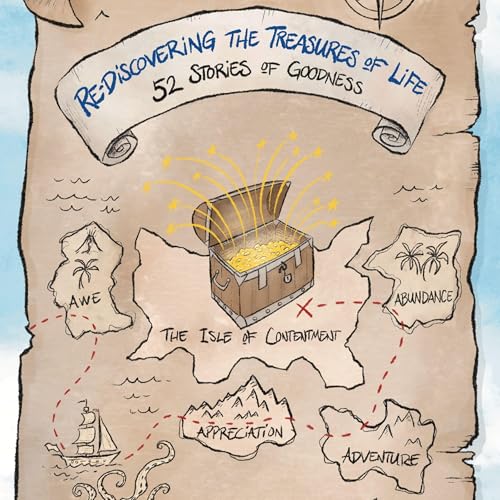 Re-Discovering the Treasures of Life
52 Stories of Goodness
Awe
Abundance
The Isle of Contentment
Appreciation
Adventure